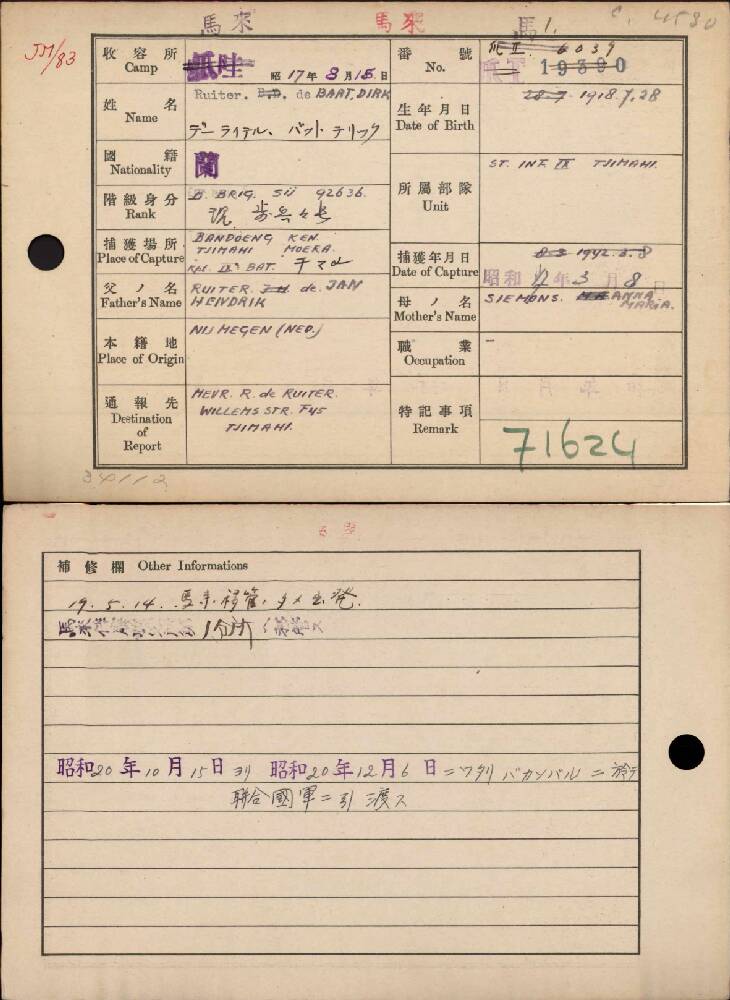 馬来 馬來 馬1.
JM/83
收容所 Camp 紙哇 昭17年8月15日
番號 No. 爪II. 6039 19390
姓名 Name Ruiter. B.D. de BAART, DIRK
デーライテル、バールト デリック
生年月日 Date of Birth 28-7- 1918.7.28
國籍 Nationality 蘭
所屬部隊 Unit ST. INF. IX TJIMAHI.
階級身分 Rank B. BRIG. SII 92636.
捕獲場所 Place of Capture BANDOENG KEN.
TJIMAHI MOERA.
KPL. IXe BAT. チマヒ
捕獲年月日 Date of Capture 8-3 1942.3.8
昭和17年3月8日
父ノ名 Father's Name RUITER. J.H. de. JAN
HENDRIK
母ノ名 Mother's Name SIEMONS. ANNA
MARIA.
本籍地 Place of Origin NIJMEGEN (NED.)
職業 Occupation -
通報先 Destination of Report MEVR. R. de RUITER.
WILLEMS STR. F45
TJIMAHI.
特記事項 Remark
71624
補修欄 Other Informations
19.5.14. 馬来移管ノタメ出発
1分所
昭和20年10月15日ヨリ 昭和20年12月6日ニワタリ パカンバルニ於テ
聯合國軍ニ引渡ス